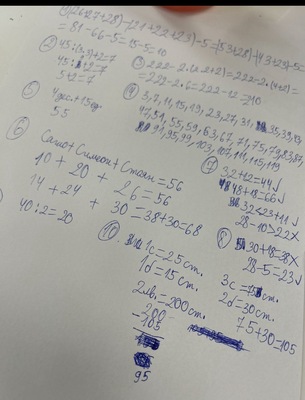 (26+27+28)-(21+22+23)-5=(53+28)-(43+23)-5=
=81-66-5=15-5=10
② 45:(2,5)+2=7
45:
5+2=7
③ 222-2.(2.2+2)=222-2.(4+2)=
=222-2.6=222-12=210
④ 3, 7, 11, 15, 19, 23, 27, 31, 35, 39, 43,
47, 51, 55, 59, 63, 67, 71, 75, 79, 83, 87,
91, 95, 99, 103, 107, 111, 115, 119
⑤
55
⑥ Само+Симеон+Стоян=56
10 + 20 + 26=56
14 + 24 + 30=38+30=68
40:2=20
⑦ 32+12=44√
48+18=66√
32<23+11√
28-10>22X
⑧ 30+18=38X
28-5=23√
⑩ 1с=25 cm.
1d=15 cm.
2лв.=200 cm.
-200
185
95
3с=75 cm.
2d=30 cm.
75+30=105